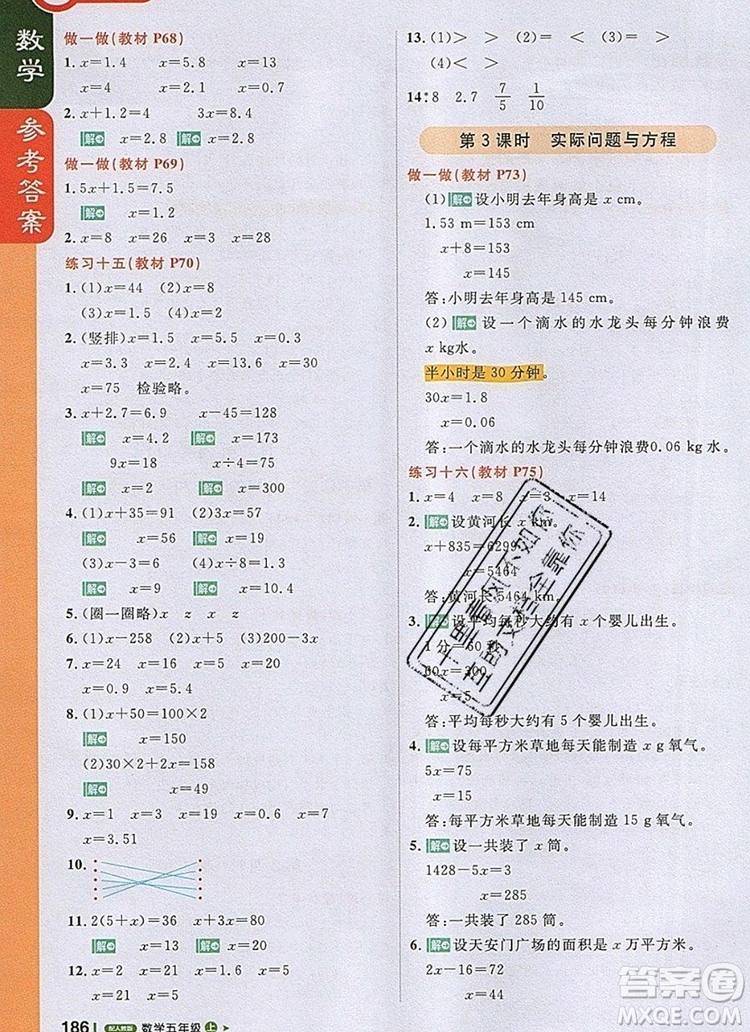 数学
参考答案
做一做(教材 P68)
1. x=1.4 x=5.8 x=13
x=4 x=80 x=9
2. x+1.2=4 3x=8.4
解 x=2.8 解 x=2.8
做一做(教材 P69)
1. 5x+1.5=7.5
解 x=1.2
2. x=8 x=26 x=3 x=28
练习十五(教材 P70)
1. (1)x=44 (2)x=8
(3)x=1.5 (4)x=2
2. (竖排)x=5.5 x=5 x=0.3
x=3.5 x=13.6 x=30
x=75 检验略。
3. x+2.7=6.9 x-45=128
解 x=4.2 解 x=173
9x=18 x÷4=75
解 x=2 解 x=300
4. (1)x+35=91 (2)3x=57
解 x=56 解 x=19
(3)x-6=9 (4)x÷8=1.3
解 x=15 解 x=10.4
5. (圈一圈略) x z x z
6. (1)x-258 (2)5x (3)200-3x
7. x=81 x=2 x=3
8. (1)x+50=200
解 x=150
(2)30×2+2x=158
解 x=49
9. x=1 x=3 x=1.6 x=7
x=3.51
10.
11. 2(5+x)=36 x+3x=80
解 x=13 解 x=20
12. x=2 x=21 x=15
186 配人教版 数学五年级 上
13. (1)> > (2)= = (3)< <
(4)< >
14. 8 2.7 7/5 1/10
第 3 课时 实际问题与方程
做一做(教材 P73)
(1)解 设小明去年身高是 x cm。
1.53 m=153 cm
x+8=153
x=145
答:小明去年身高是 145 cm。
(2)解 设一个滴水的水龙头每分钟浪费
x kg水。
半小时是 30 分钟。
30x=1.8
x=0.06
答:一个滴水的水龙头每分钟浪费0.06 kg水。
练习十六(教材 P75)
1. x=4 x=8 x=3 x=14
2. 解 设黄河长 x km。
x+835=6299
x=5464
答:黄河长 5464 km。
3. 解 设平均每秒大约有 x 个婴儿出生。
1 分=60 秒
60x=300
x=5
答:平均每秒大约有 5 个婴儿出生。
4. 解 设每平方米草地每天能制造 x g氧气。
5x=75
x=15
答:每平方米草地每天能制造 15 g 氧气。
5. 解 设一共装了 x 筒。
1428-5x=3
x=285
答:一共装了 285 筒。
6. 解 设天安门广场的面积是 x 万平方米。
2x-16=72
答案圈
MXQE.COM